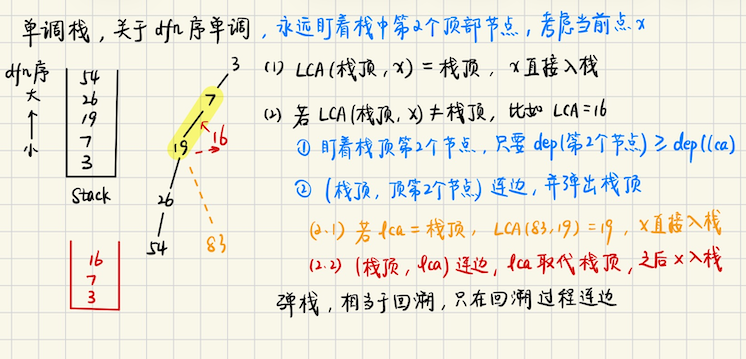 单调栈，关于dfn序单调，永远盯着栈中第2个顶部节点，考虑当前点x
dfn序
大
↑
小
54
26
19
7
3
Stack
16
7
3
3
7
16
19
26
54
83
(1) LCA(栈顶, x) = 栈顶，x直接入栈
(2) 若LCA(栈顶, x) ≠ 栈顶，比如 LCA=16
① 盯着栈顶第2个节点，只要 dep(第2个节点) ≥ dep(lca)
② (栈顶, 顶第2个节点) 连边，并弹出栈顶
(2.1) 若lca = 栈顶，LCA(83,19) = 19，x直接入栈
(2.2) (栈顶, lca) 连边，lca取代栈顶，之后x入栈
弹栈，相当于回溯，只在回溯过程连边